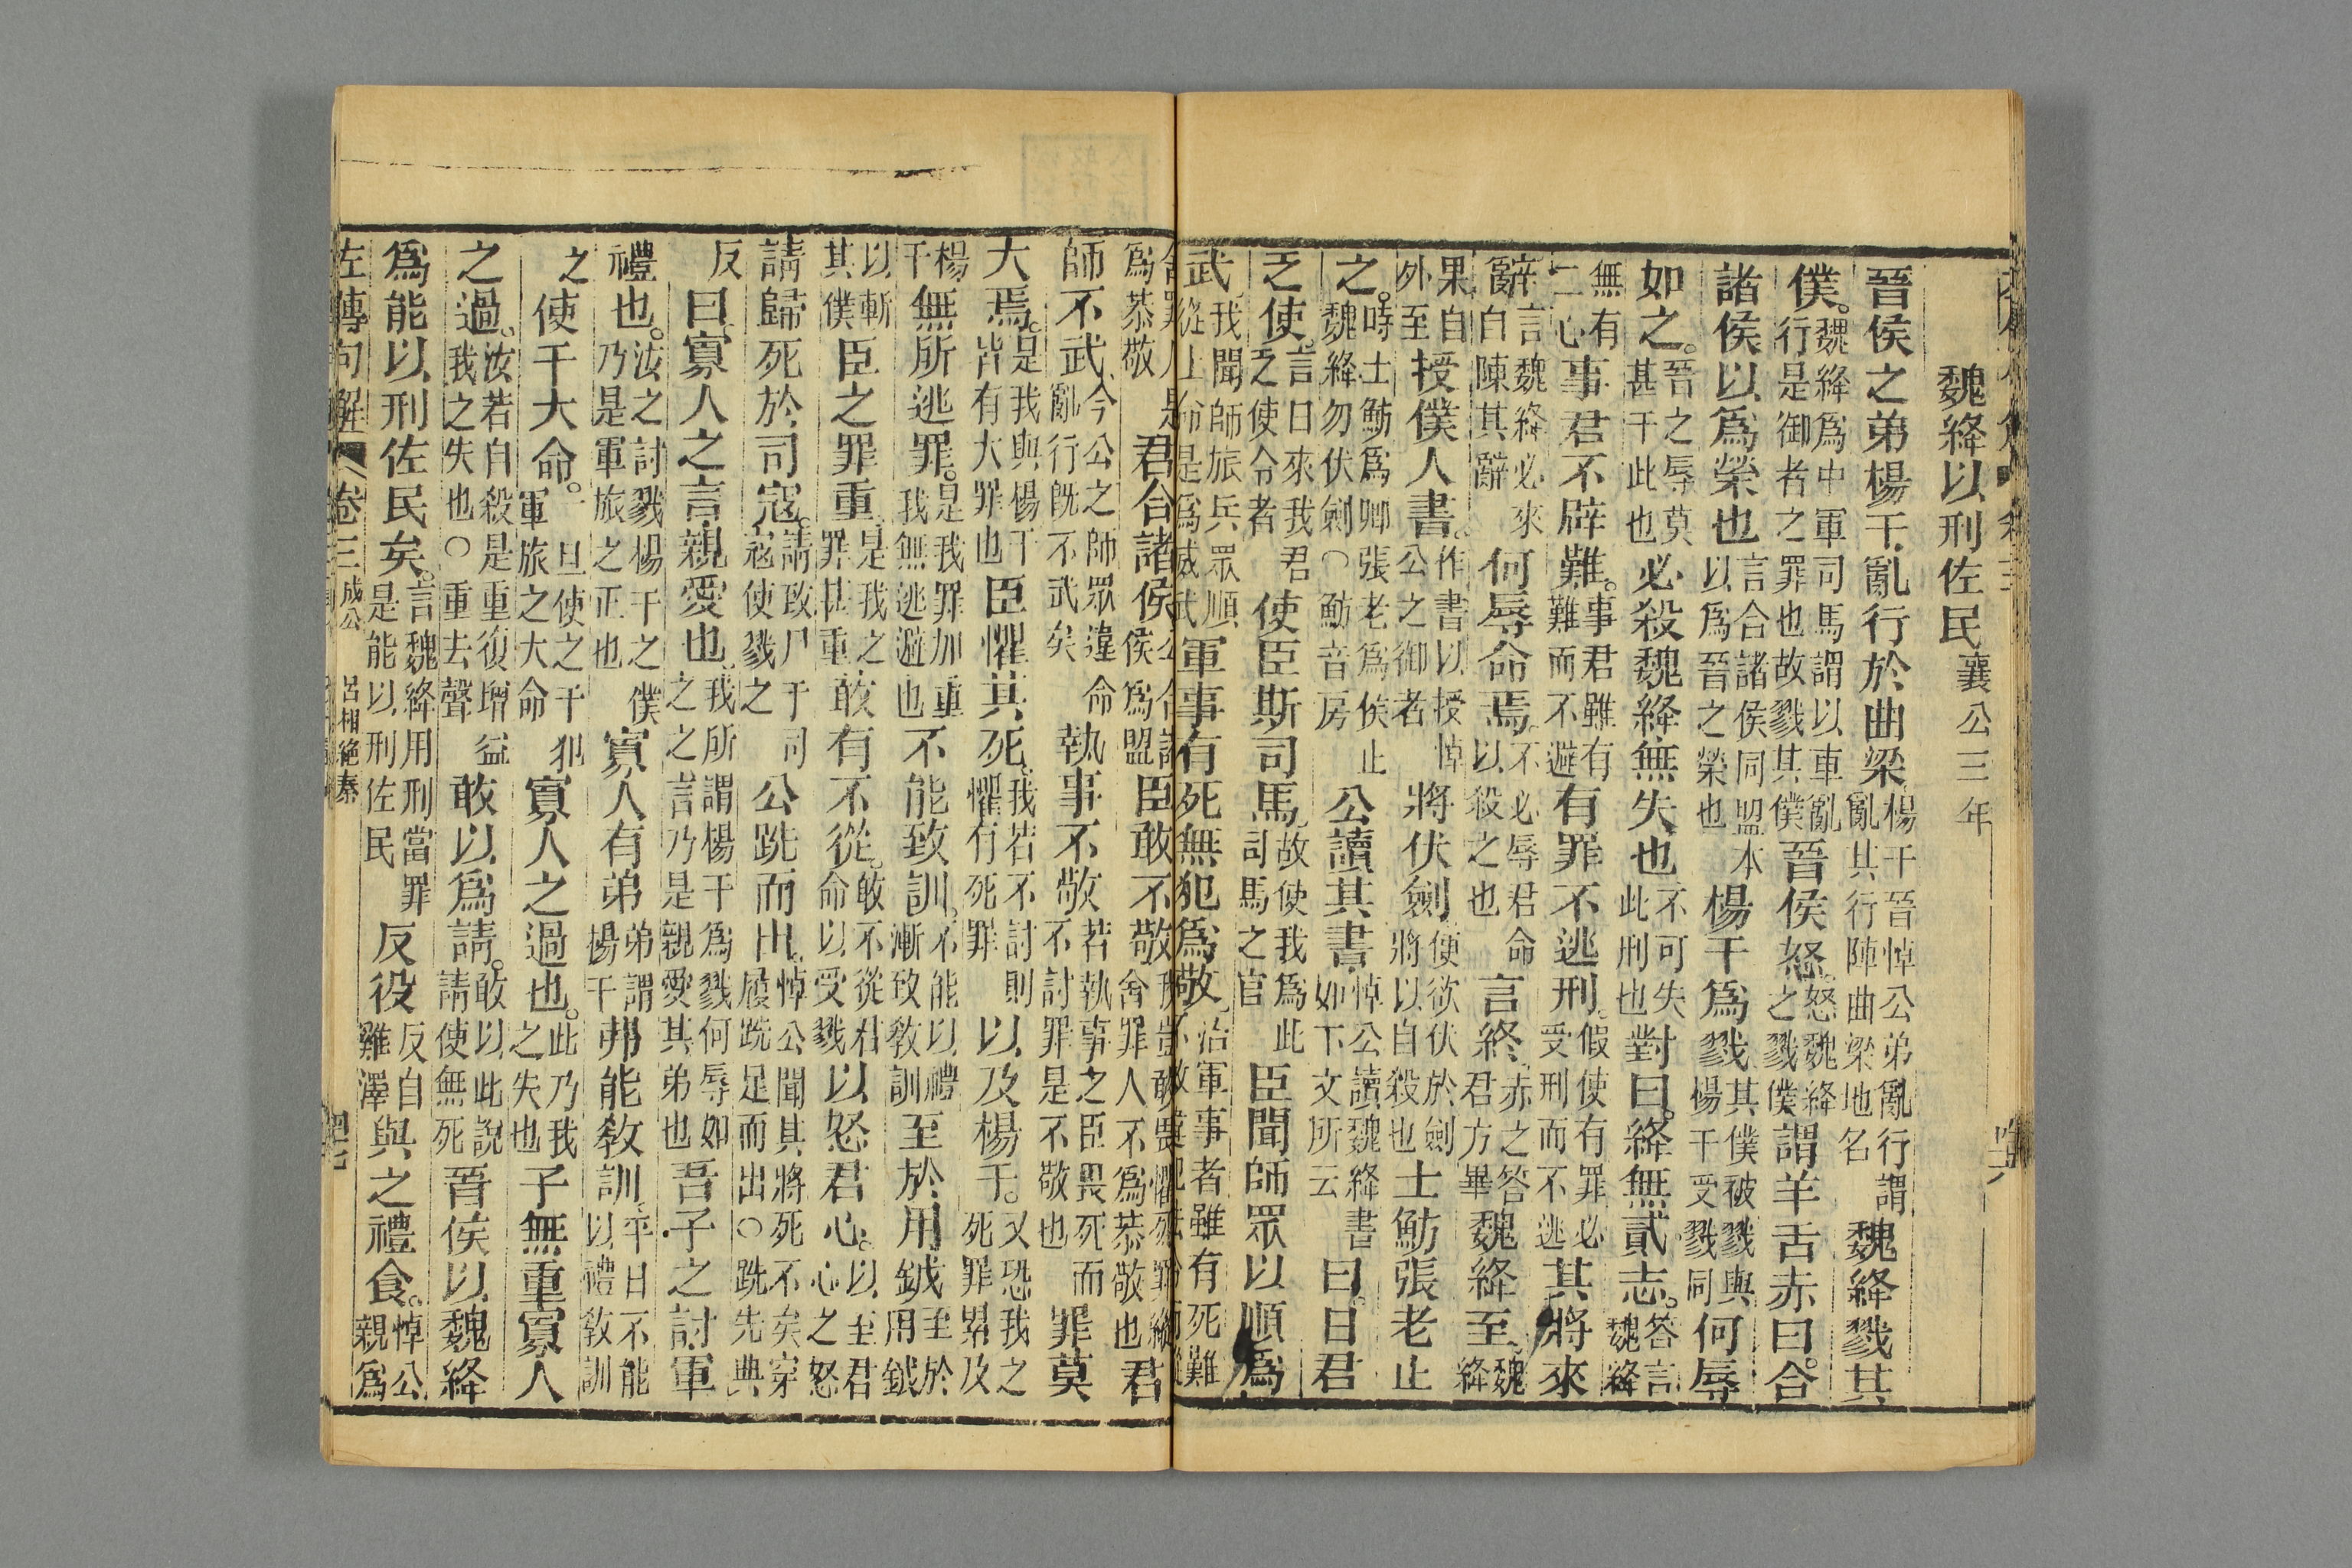 魏絳以刑佐民襄公三年
晉侯之弟楊干亂行於曲梁楊干晉悼公弟亂行謂亂其行陣曲梁地名魏絳戮其
僕魏絳爲中軍司馬謂以車亂行是御者之罪也故戮其僕晉侯怒怒魏絳之戮僕謂羊舌赤曰合
諸侯以爲榮也言合諸侯同盟本以爲晉之榮也楊干爲戮其僕被戮與楊干受戮同何辱
如之吾之辱莫甚于此也必殺魏絳無失也不可失此刑也對曰絳無貳志答言魏絳
無有二心事君不辟難事君雖有難而不避有罪不逃刑假使有罪必受刑而不逃其將來
辭言魏絳必來自陳其辭何辱命焉不必辱君命以殺之也言終赤之答君方畢魏絳至魏絳
果自外至授僕人書作書以授悼公之御者將伏劍便欲伏於劍將以自殺也士魴張老止
之時士魴爲卿張老爲侯止魏絳勿伏劍○魴音房公讀其書悼公讀魏絳書如下文所云曰日君
乏使言日來我君乏使令者使臣斯司馬故使我爲此司馬之官臣聞師眾以順爲
武我聞師旅兵眾順從上命是爲威武軍事有死無犯爲敬治軍事者雖有死難
君合諸侯侯爲盟臣敢不敬罪人不爲恭敬也君
師不武今公之師眾違命亂行既不武矣執事不敬若執事之臣畏死而不討罪是不敬也罪莫
大焉是我與楊干皆有大罪也臣懼其死我若不討則懼有死罪以及楊干又恐我之死罪累及
楊干無所逃罪是我罪加重我無逃避也不能致訓不能以禮漸致教訓至於用鉞至於用鉞
以斬其僕臣之罪重是我之罪甚重敢有不從敢不從君命以受戮以怒君心以至君心之怒
請歸死於司寇請致尸于司寇使戮之公跣而出悼公聞其將死不矣穿履跣足而出○跣先典
反曰寡人之言親愛也我所謂楊干爲戮何辱如之之言乃是親愛其弟也吾子之討軍
禮也汝之討戮楊干之僕乃是軍旅之正也寡人有弟弟謂楊干弗能教訓平日不能以禮教訓
之使干大命一旦使之干犯軍旅之大命寡人之過也此乃我之失也子無重寡人
之過汝若自殺是重復增益我之失也○重去聲敢以爲請敢以此說請使無死晉侯以魏絳
爲能以刑佐民矣言魏絳用刑當罪是能以刑佐民反役反自雞澤與之禮食悼公親爲
左傳句解 卷三 成公 呂相絕秦 四七